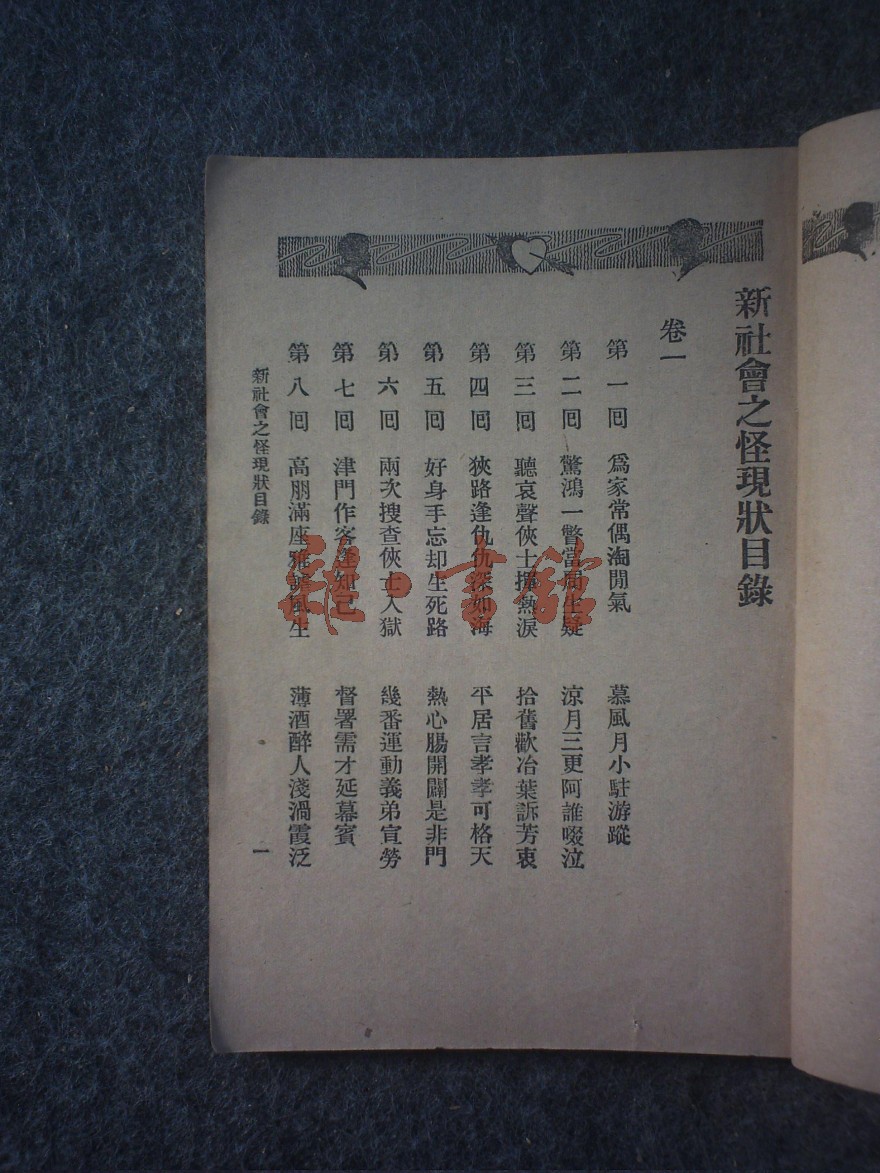 新社會之怪現狀目錄
卷一
第一回 爲家常偶淘閒氣 慕風月小駐游蹤
第二回 驚鴻一瞥當局生疑 涼月三更阿誰啜泣
第三回 聽哀聲俠士揮熱淚 拾舊歡冶葉訴芳衷
第四回 狹路逢仇仇深如海 平居言孝孝可格天
第五回 好身手忘却生死路 熱心腸開闢是非門
第六回 兩次搜查俠士入獄 幾番運動義弟宣勞
第七回 津門作客逢知己 督署需才延幕賓
第八回 高朋滿座雅謔風生 薄酒醉人淺渦霞泛
新社會之怪現狀目錄
一
書館